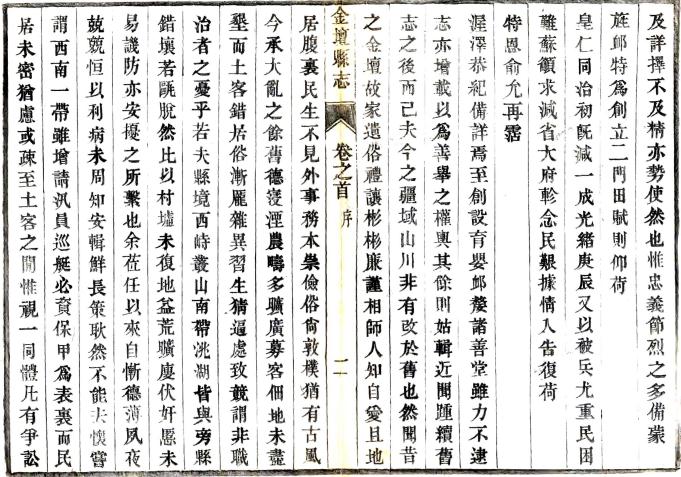 及詳擇不及精亦勢使然也惟忠義節烈之多備蒙
旌邺特為創立二門田賦則仰荷
皇仁同治初旣減一成光緒庚辰又以被兵尤重民困
難蘇籲求減省大府軫念民艱據情入告復荷
特恩俞允再霑
渥澤恭紀備詳焉至創設育嬰邺嫠諸善堂雖力不逮
志亦增載以爲善舉之權輿其餘則姑輯近聞踵續舊
志之後而已夫今之疆域山川非有改於舊也然聞昔
之金壇故家遺俗禮讓彬彬廉謹相師人知自愛且地
金壇縣志
卷之首
序
二
居腹裏民生不見外事務本崇儉俗尙敦樸猶有古風
今承大亂之餘舊德寖湮農疇多曠廣募客佃地未盡
墾而土客錯居俗漸厖雜異習生猜逼處致競謂非職
治者之憂乎若夫縣境西峙叢山南帶洮湖皆與旁縣
錯壤若甌脫然比以村墟未復地益荒曠慶伏奸慝未
易譏防亦安擾之所繫也余莅任以來自慚德薄夙夜
兢兢恒以利病未周知安輯鮮長策耿然不能夫懷嘗
謂西南一帶雖增請汛員巡艇必資保甲爲表裏而民
居未密猶慮或疎至土客之閒惟視一同體凡有爭訟